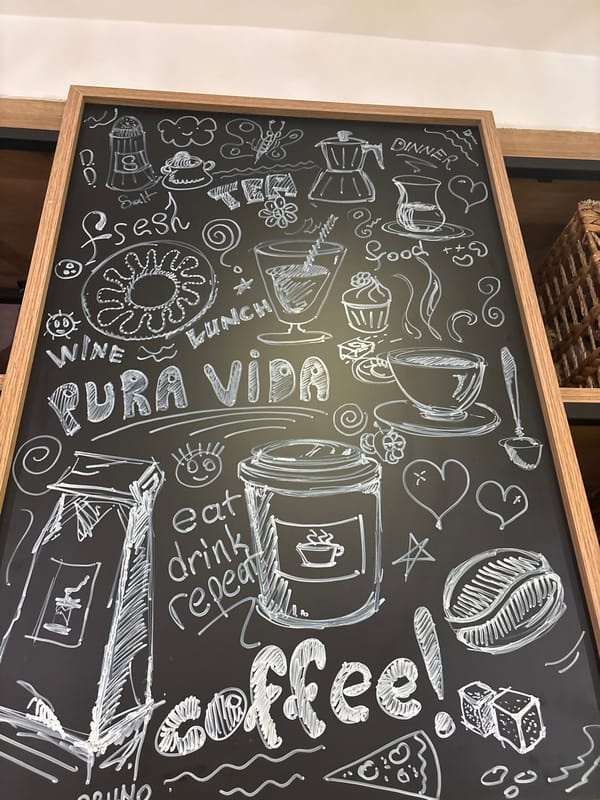 DINNER
Salt
TEE
fresh
food
LUNCH
WINE
PURA ViDA
eat
drink
repeat
coffee!